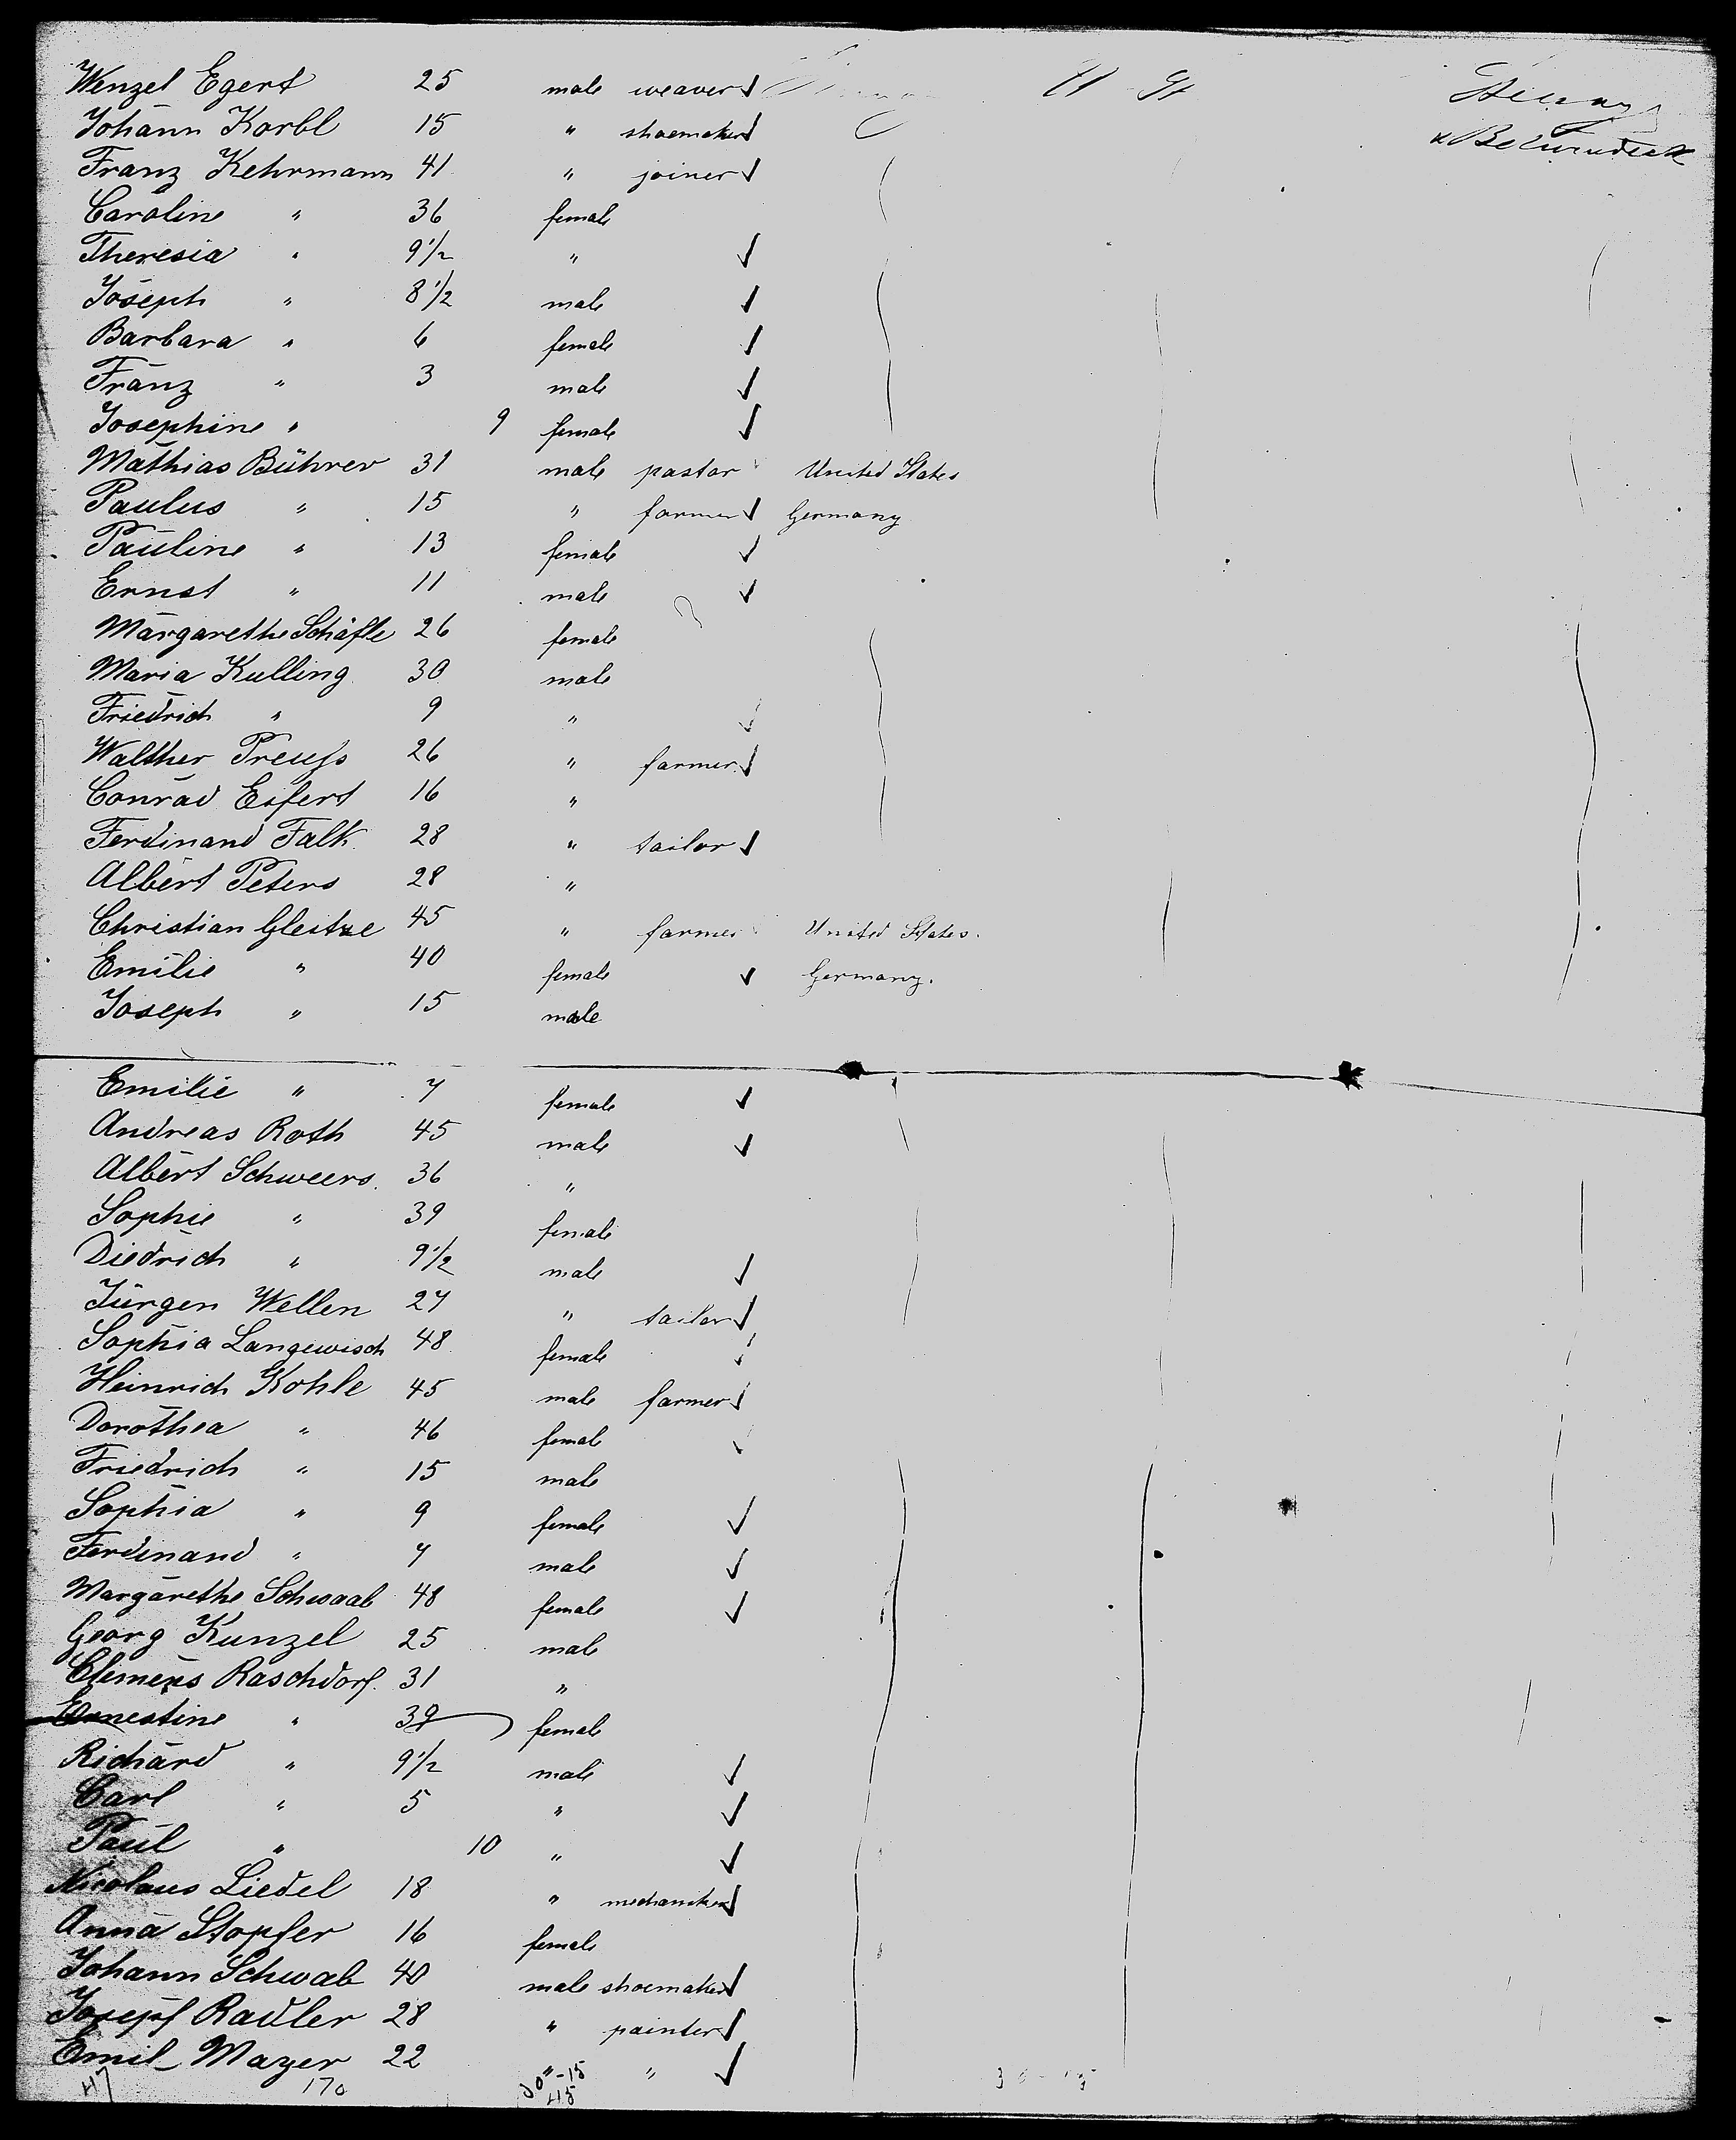 Wenzel Egert 25 male weaver U St Steerage
Johann Korbl 15 " shoemaker
Franz Kehrmann 41 " joiner
Caroline " 36 female
Theresia " 9 1/2 "
Joseph " 8 1/2 male
Barbara " 6 female
Franz " 3 male
Josephine " 9 female
Mathias Bührer 31 male pastor United States
Paulus " 15 " farmer Germany
Pauline " 13 female
Ernst " 11 male
Margarethe Schäfle 26 female
Maria Kulling 30 male
Friedrich " 9 "
Walther Preuss 26 " farmer
Conrad Eifert 16 "
Ferdinand Falk 28 " tailor
Albert Peters 28 "
Christian Gleitze 45 " farmer United States.
Emilie " 40 female Germany.
Joseph " 15 male
Emilie " 7 female
Andreas Roth 45 male
Albert Schweers 36 "
Sophie " 39 female
Diedrich " 9 1/2 male
Jürgen Wellen 27 " tailor
Sophia Langewisch 48 female
Heinrich Kohle 45 male farmer
Dorothea " 46 female
Friedrich " 15 male
Sophia " 9 female
Ferdinand " 7 male
Margarethe Schwaab 48 female
Georg Kunzel 25 male
Clemens Raschdorf 31 "
Ernestine " 39 female
Richard " 9 1/2 male
Carl " 5 "
Paul " 10 "
Nicolaus Liedel 18 " mechaniker
Anna Stopfer 16 female
Johann Schwab 40 male shoemaker
Josepf Radler 28 " painter
Emil Mayer 22 " "
47 170